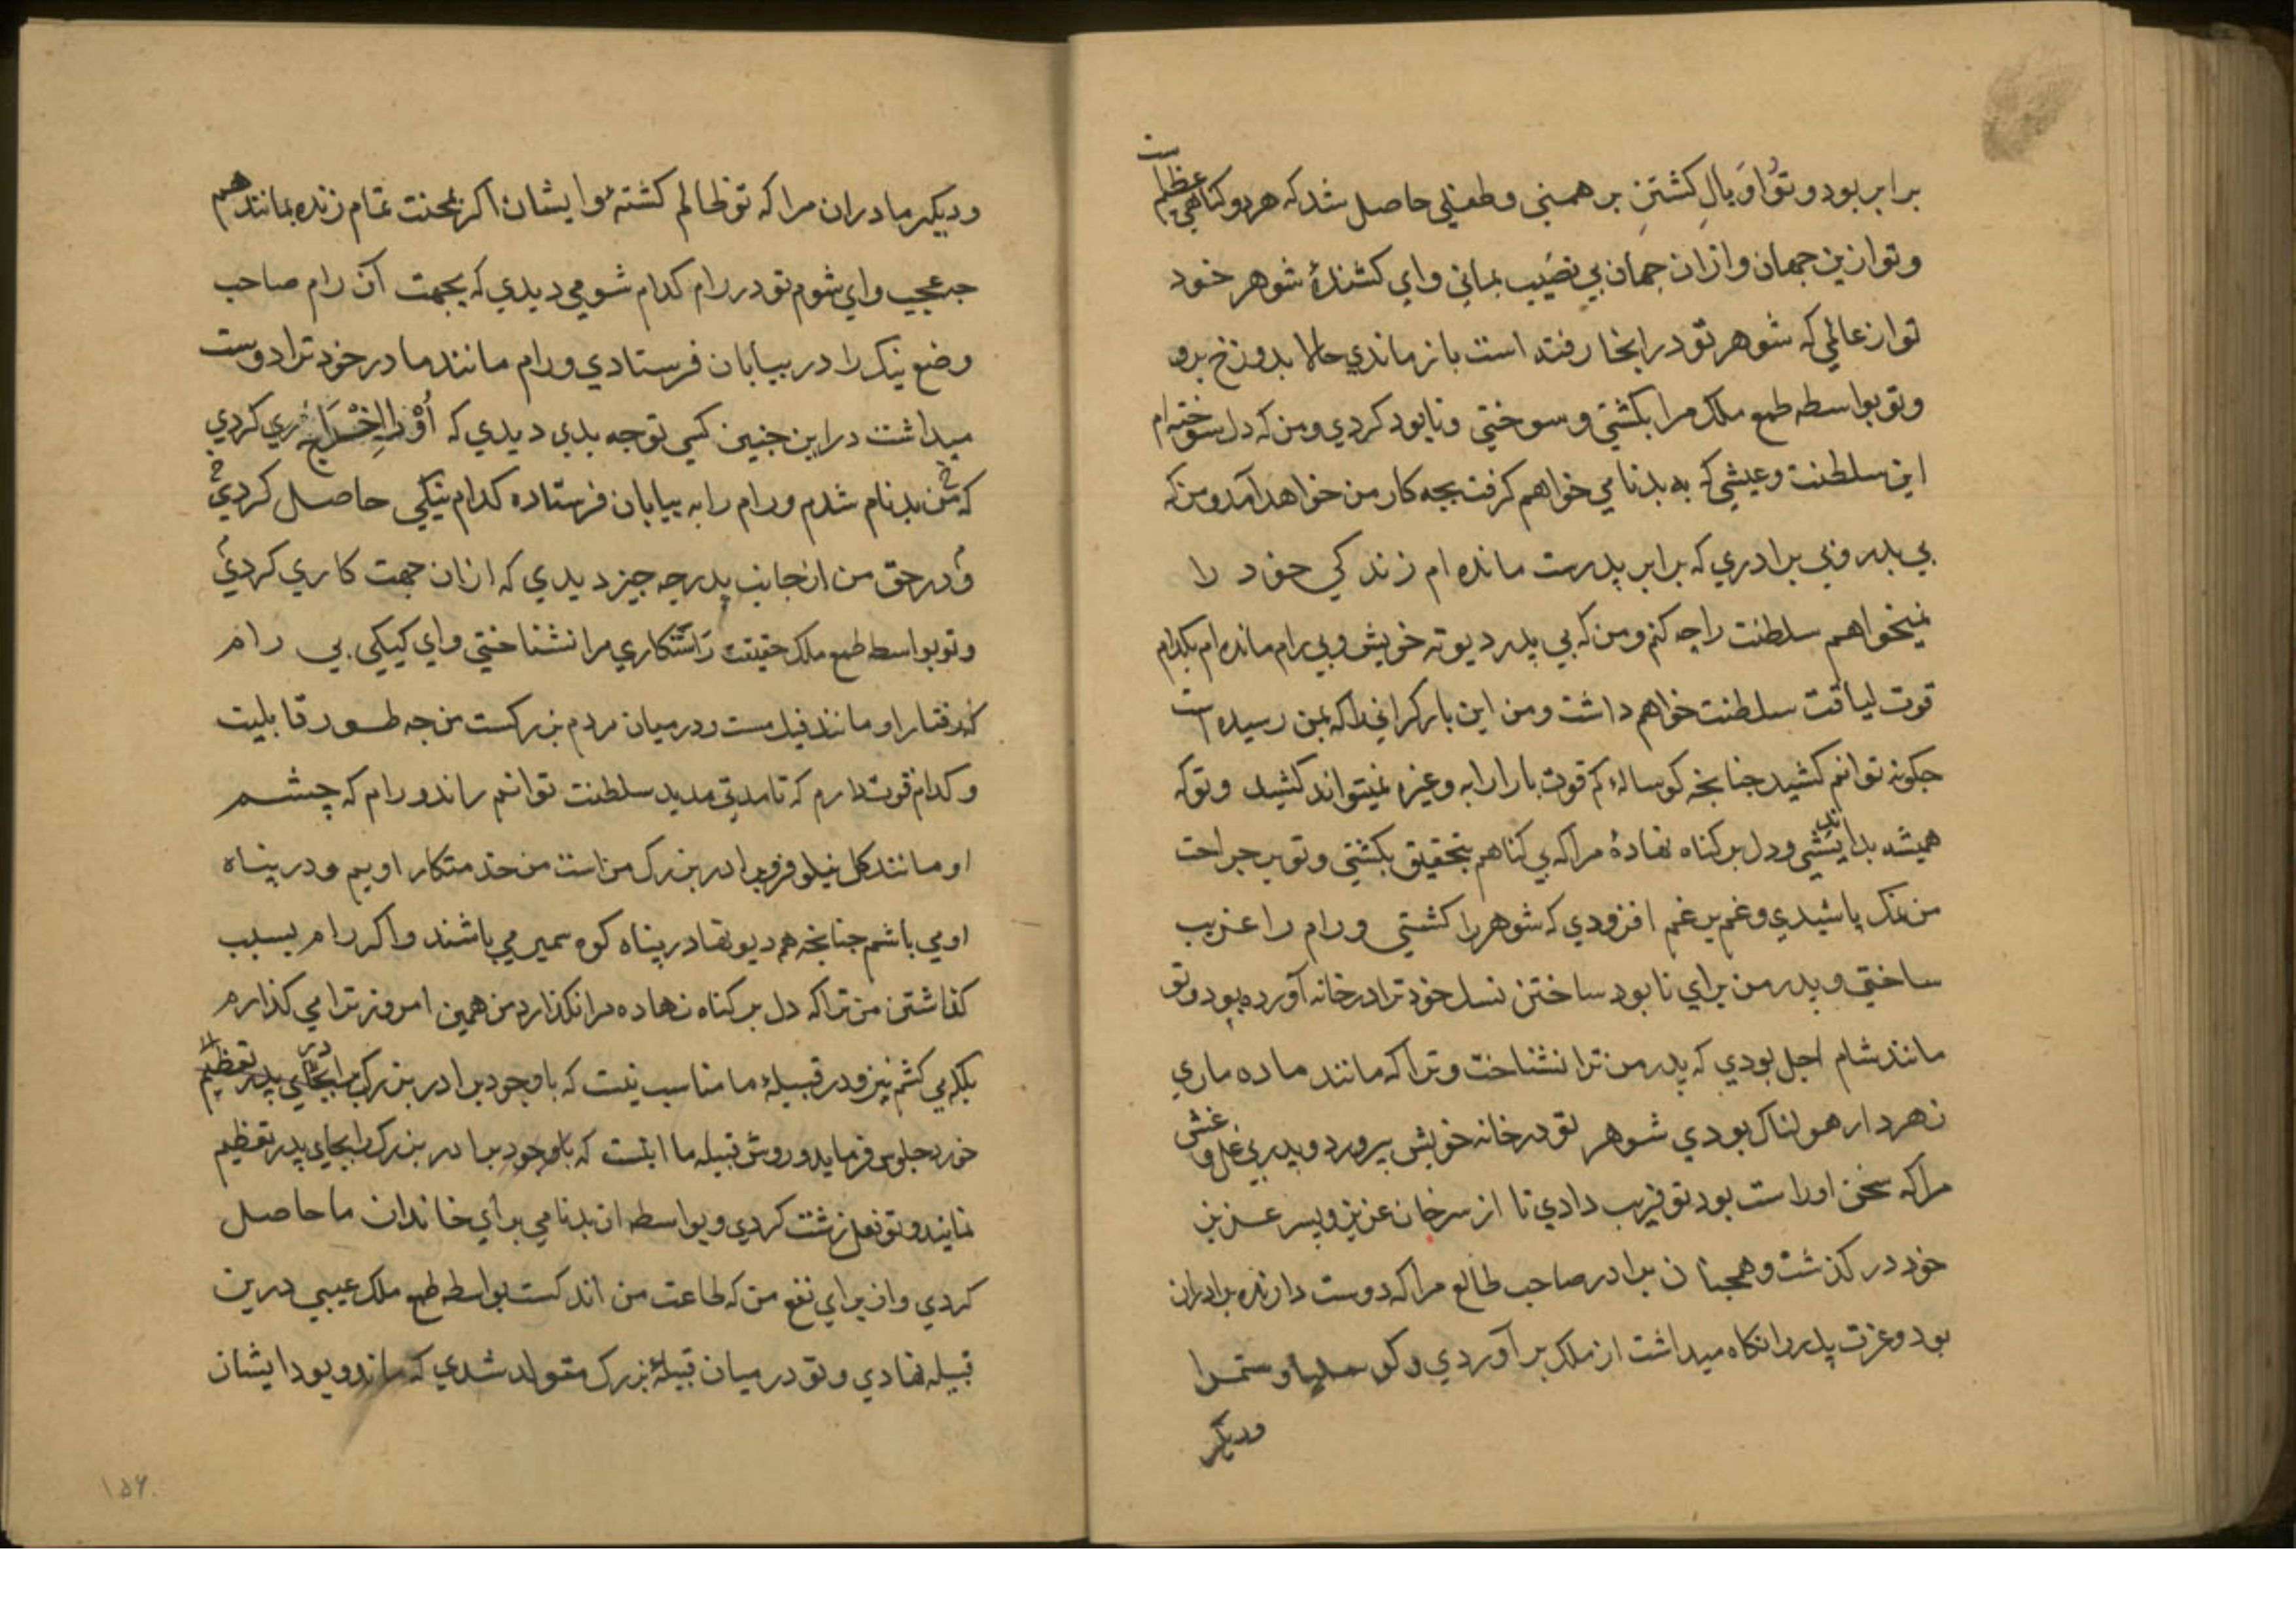 برابر بود و تو او بال کشتن برهمنی و طفلی حاصل شد که هر دو کناهی عظیم است
و تو ازین جهان و ازان جهان بی نصیب بمانی و ای کشندهٔ شوهر خود
تو از عالمی که شوهر تو در اینجا رفته است باز ماندی حالا بدوزخ برو
و تو بواسطه طمع ملک مرا بکشتی و سوختی و نابود کردی و من که دل سوخته ام
این سلطنت و عیشی که به بدنامی خواهم کرفت بچه کار من خواهد آمد و من که
بی پدر و بی برادری که برابر پدرست مانده ام زندکی خود را
نمیخواهم سلطنت را چه کنم و من که بی پدر دیوته خویش و بی رام مانده ام بکدام
قوت لیاقت سلطنت خواهم داشت و من این بار کرانی را که بمن رسیده است
چکونه توانم کشید چنانچه کوساله کم قوت بار ارابه وغیره نمیتواند کشید و تو که
همیشه بداندیشی و دل بر کناه نهادهٔ مرا که بی کناهم بتحقیق بکشتی و تو بر جراحت
من نمک پاشیدی و غم بر غم افزودی که شوهر را کشتی و رام را غریب
ساختی و پدر من برای نابود ساختن نسل خود ترا در خانه آورده بود و تو
مانند شام اجل بودی که پدر من ترا نشناخت و ترا که مانند ماده ماری
زهردار هولناک بودی شوهر تو در خانه خویش پرورد و پدر بی غل و غش
مرا که سخن او راست بود تو فریب دادی تا از سر جان عزیز و پسر عزیز
خود در کذشت و همچنان برادر صاحب طالع مرا که دوست دارنده برادران
بود و عزت پدر را نکاه میداشت از ملک بر آوردی و کوسلیا و ستمرا
ودیکر
ودیکر مادران مرا که تو ظالم کشتهٔ و ایشان اکر بمحنت تمام زنده بمانند هم
چه عجب و ای شوم تو در رام کدام شومی دیدی که بجهت آن رام صاحب
وضع نیک را در بیابان فرستادی و رام مانند مادر خود ترا دوست
میداشت در این چنین کسی تو چه بدی دیدی که او را اخراج کردی
که من بدنام شدم و رام را به بیابان فرستاده کدام نیکی حاصل کردی
و در حق من از جانب پدر چه چیز دیدی که ازان جهت کاری کردی
و تو بواسطه طمع ملک حقیقت راستکاری مرا نشناختی و ای کیکی بی رام
که رفتار او مانند فیل مست و در میان مردم بزرکست من چه طور قابلیت
و کدام قوت دارم که تا مدتی مدید سلطنت توانم راند و رام که چشم
او مانند کل نیلوفر و برادر بزرک من است من خدمتکار اویم و در پناه
او می باشم چنانچه هم دیوتها در پناه کوه سمیر می باشند و اکر رام بسبب
کذاشتن من ترا که دل بر کناه نهاده مرا نکذارد من همین امروز ترا می کذارم
بلکه می کشم نیز و در قبیلهٔ ما مناسب نیست که باوجود برادر بزرک برادر
خورد جلوس فرماید و روش قبیله ما اینست که باوجود برادر بزرک را بجای پدر تعظیم
نمایند و تو فعل زشت کردی و بواسطه ان بدنامی برای خاندان ما حاصل
کردی و از برای نفع من که طاعت من اندکست بواسطه طمع ملک عیبی درین
قبیله نهادی و تو در میان قبیلهٔ بزرک متولد شدی که ماند و بود ایشان
۱۵۶